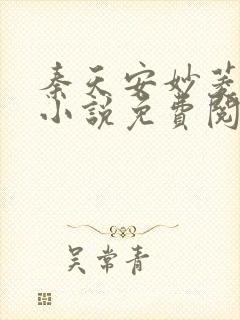 秦天安妙菱
小说免費閱
吴常青